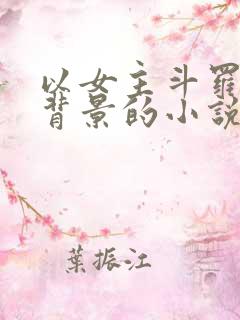 以女主斗罗
背景的小说
葉振江